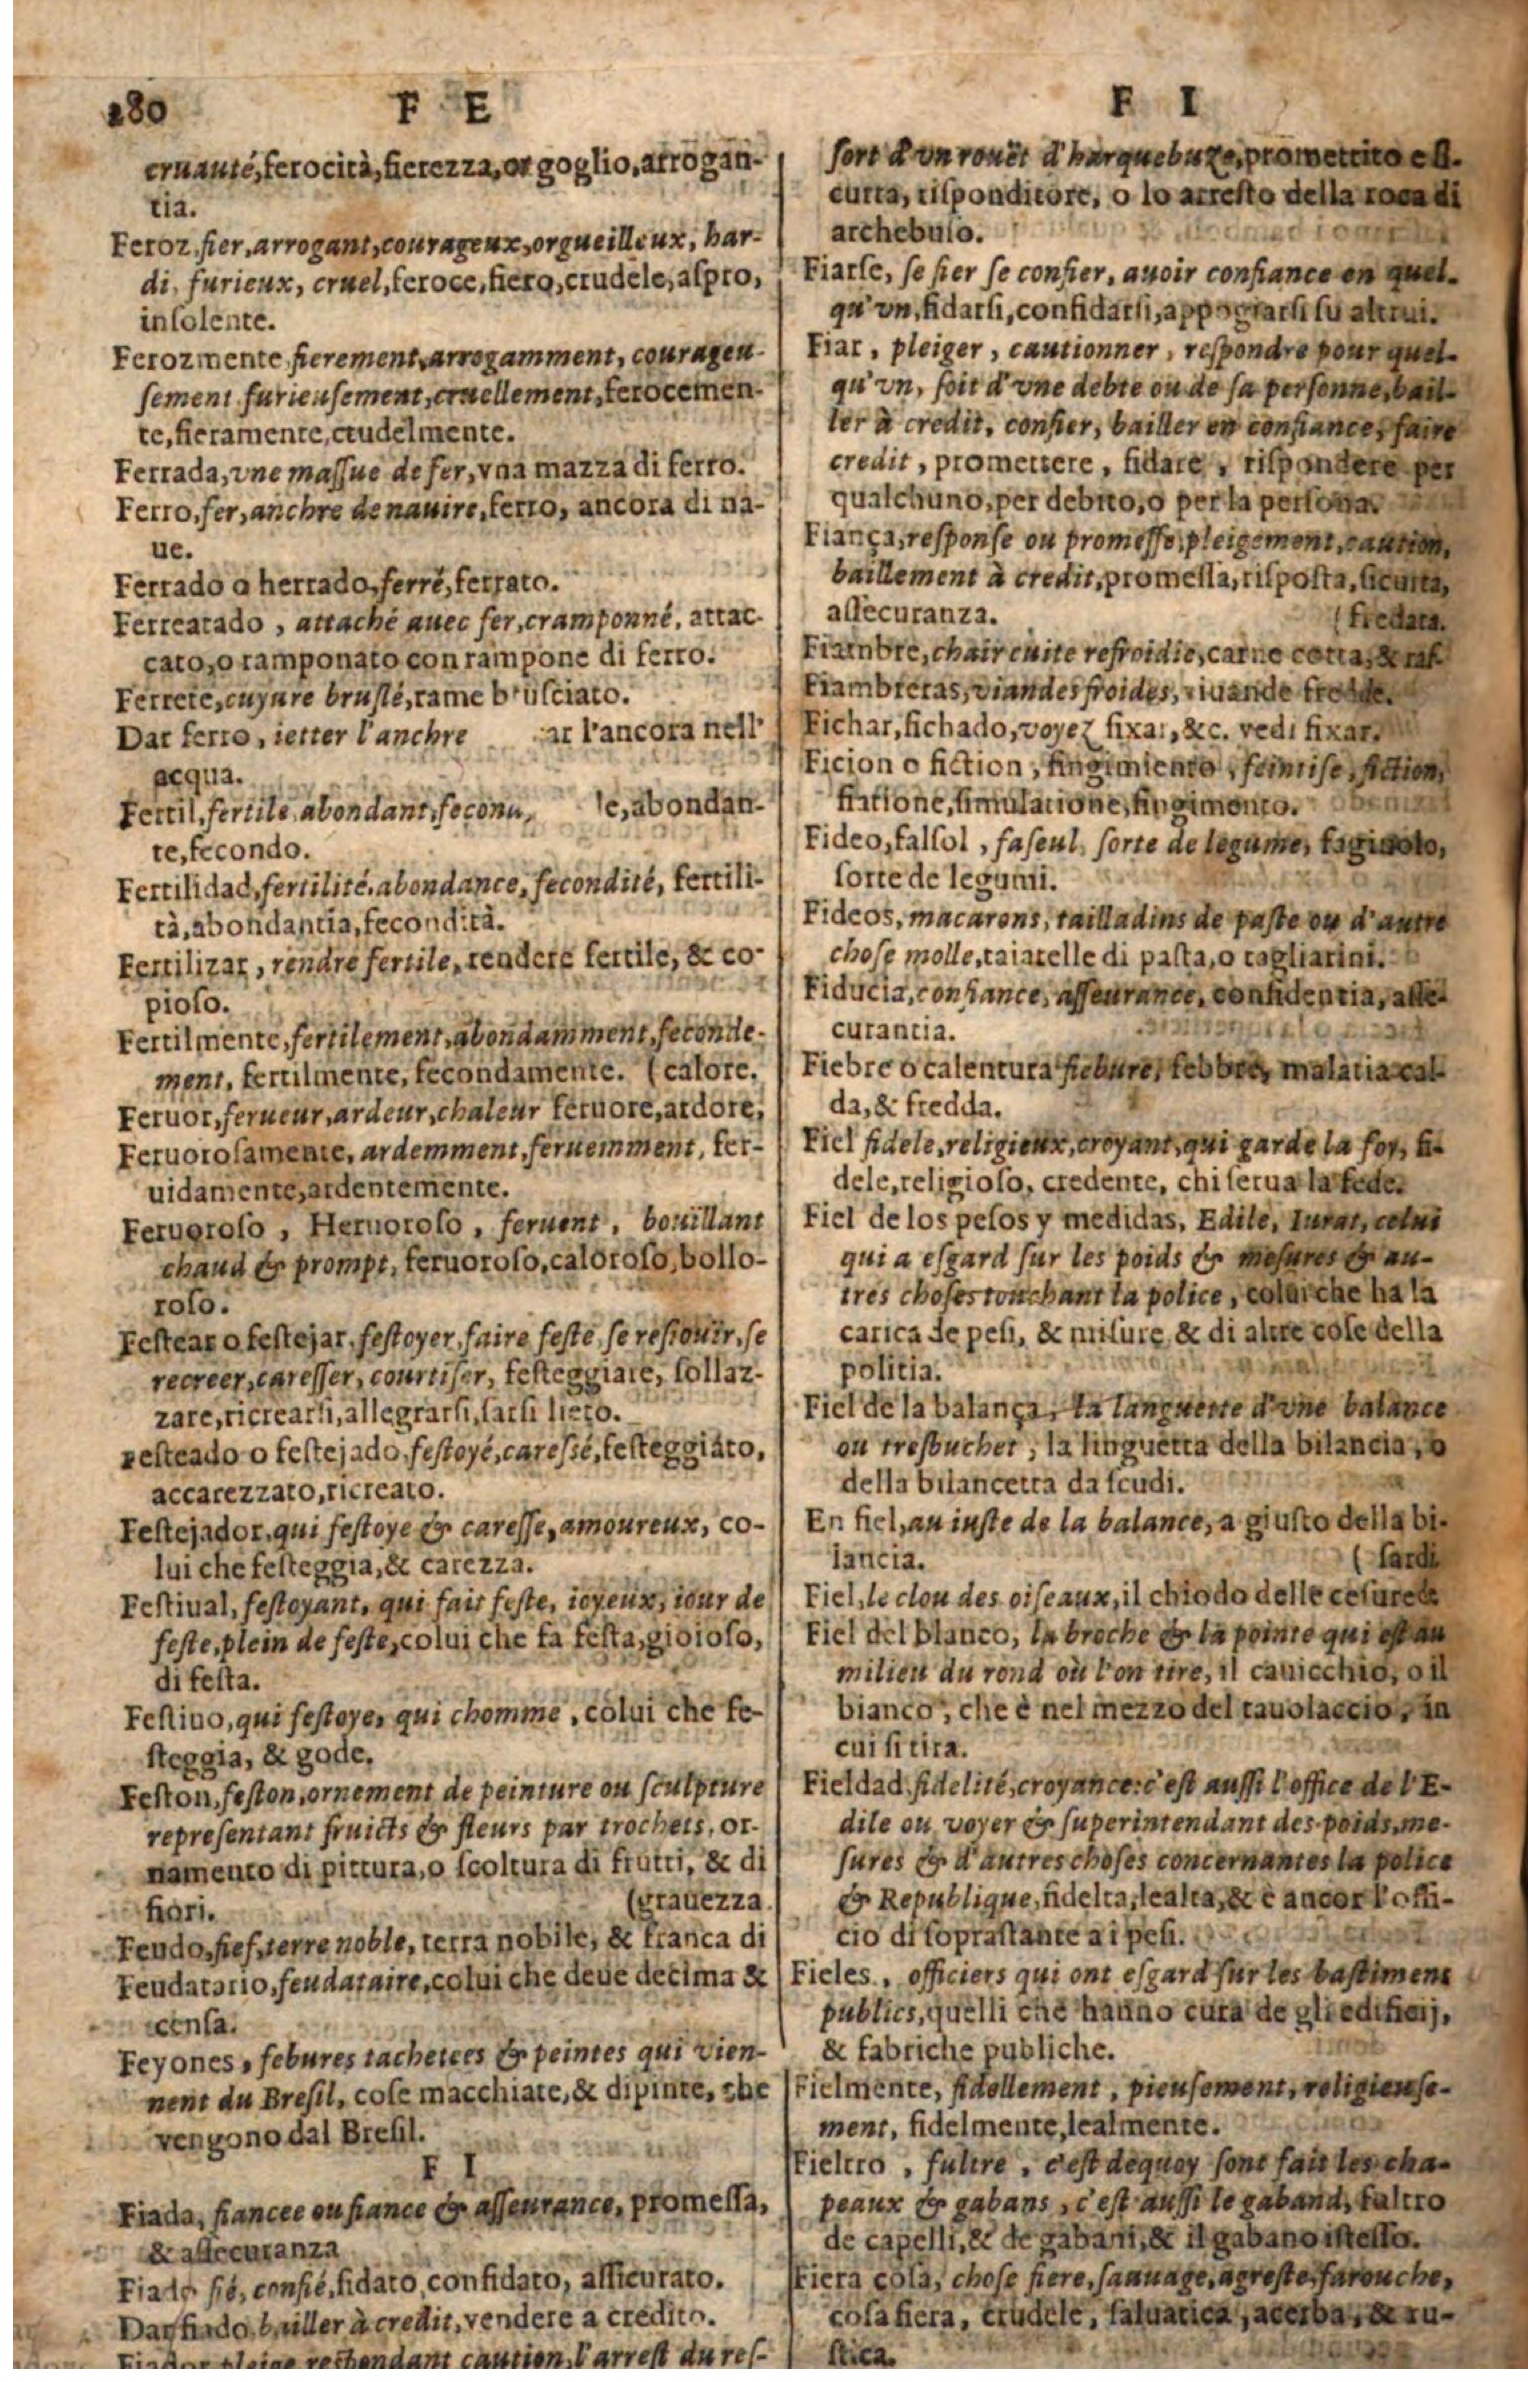 280 F E
cruauté, ferocità, fierezza, orgoglio, arrogan-
tia.
Feroz, fier, arrogant, courageux, orgueilleux, har-
di, furieux, cruel, feroce, fiero, crudele, aſpro,
inſolente.
Ferozmente, fierement, arrogamment, courageu-
ſement furieuſement, cruellement, ferocemen-
te, fieramente, crudelmente.
Ferrada, vne maſſue de fer, vna mazza di ferro.
Ferro, fer, anchre de nauire, ferro, ancora di na-
ue.
Ferrado o herrado, ferré, ferrato.
Ferreatado, attaché auec fer, cramponné, attac-
cato, o ramponato con rampone di ferro.
Ferrete, cuyure bruſlé, rame bruſciato.
Dar ferro, ietter l'anchre ar l'ancora nell'
acqua.
Fertil, fertile, abondant, fecon le, abondan-
te, fecondo.
Fertilidad, fertilité, abondance, fecondité, fertili-
tà, abondantia, fecondità.
Fertilizar, rendre fertile, rendere fertile, & co-
pioſo.
Fertilmente, fertilement, abondamment, feconde-
ment, fertilmente, fecondamente. (calore.
Feruor, ferueur, ardeur, chaleur feruore, ardore,
Feruoroſamente, ardemment, feruemment, fer-
uidamente, ardentemente.
Feruoroſo, Heruoroſo, feruent, bouïllant
chaud & prompt, feruoroſo, caloroſo, bollo-
roſo.
Feſtear o feſtejar, feſtoyer, faire feſte, ſe reſiouïr, ſe
recreer, careſſer, courtiſer, feſteggiare, ſollaz-
zare, ricrearſi, allegrarſi, farſi lieto.
Feſteado o feſtejado, feſtoyé, careſſé, feſteggiato,
accarezzato, ricreato.
Feſtejador, qui feſtoye & careſſe, amoureux, co-
lui che feſteggia, & carezza.
Feſtiual, feſtoyant, qui fait feſte, ioyeux, iour de
feſte, plein de feſte, colui che fa feſta, gioioſo,
di feſta.
Feſtiuo, qui feſtoye, qui chomme, colui che fe-
ſteggia, & gode.
Feſton, feſton, ornement de peinture ou ſculpture
repreſentant fruicts & fleurs par trochets, or-
namento di pittura, o ſcoltura di frutti, & di
fiori. (grauezza.
Feudo, fief, terre noble, terra nobile, & franca di
Feudatario, feudataire, colui che deue decima &
cenſa.
Feyones, febures tachetees & peintes qui vien-
nent du Breſil, coſe macchiate, & dipinte, che
vengono dal Breſil.
F I
Fiada, fiancee ou fiance & aſſeurance, promeſſa,
& aſſecuranza
Fiado fié, confié, fidato, confidato, aſſicurato.
Dar fiado, bailler à credit, vendere a credito.
Fiador pleige, reſpondant caution, l'arreſt du reſ-
F I
ſort d'vn rouët d'harquebuze, promettito e ſi-
curta, riſponditore, o lo arreſto della roca di
archebuſo.
Fiarſe, ſe fier ſe confier, auoir confiance en quel-
qu'vn, fidarſi, confidarſi, appogiarſi ſu altrui.
Fiar, pleiger, cautionner, reſpondre pour quel-
qu'vn, ſoit d'vne debte ou de ſa perſonne, bail-
ler à credit, confier, bailler en confiance, faire
credit, promettere, fidare, riſpondere per
qualchuno, per debito, o per la perſona.
Fiança, reſponſe ou promeſſe, pleigement, caution,
baillement à credit, promeſſa, riſpoſta, ſicurta,
aſſecuranza. (fredata.
Fiambre, chair cuite refroidie, carne cotta, & raf-
Fiambreras, viandes froides, viuande fredde.
Fichar, fichado, voyez fixar, &c. vedi fixar.
Ficion o fiction, fingimiento, feintiſe, fiction,
fintione, ſimulatione, fingimento.
Fideo, falſol, faſeul, ſorte de legume, fagiuolo,
ſorte de legumi.
Fideos, macarons, tailladins de paſte ou d'autre
choſe molle, taiatelle di paſta, o tagliarini.
Fiducia, confiance, aſſeurance, confidentia, aſſe-
curantia.
Fiebre o calentura fiebure, febbre, malatia cal-
da, & fredda.
Fiel fidele, religieux, croyant, qui garde la foy, fi-
dele, religioſo, credente, chi ſerua la fede.
Fiel de los peſos y medidas, Edile, Iurat, celui
qui a eſgard ſur les poids & meſures & au-
tres choſes touchant la police, colui che ha la
carica de peſi, & miſure & di altre coſe della
politia.
Fiel de la balança, la languette d'vne balance
ou tresbuchet, la linguetta della bilancia, o
della bilancetta da ſcudi.
En fiel, au iuſte de la balance, a giuſto della bi-
lancia. (ſardi
Fiel, le clou des oiſeaux, il chiodo delle ceſure de
Fiel del blanco, la broche & la pointe qui eſt au
milieu du rond où l'on tire, il cauicchio, o il
bianco, che è nel mezzo del tauolaccio, in
cui ſi tira.
Fieldad, fidelité, croyance: c'eſt auſſi l'office de l'E-
dile ou voyer & ſuperintendant des poids, me-
ſures & d'autres choſes concernantes la police
& Republique, fidelta, lealta, & è ancor l'offi-
cio di ſopraſtante a i peſi.
Fieles, officiers qui ont eſgard ſur les baſtimens
publics, quelli che hanno cura de gli edificij,
& fabriche publiche.
Fielmente, fidellement, pieuſement, religieuſe-
ment, fidelmente, lealmente.
Fieltro, fultre, c'eſt dequoy ſont fait les cha-
peaux & gabans, c'eſt auſſi le gaband, faltro
de capelli, & de gabani, & il gabano iſteſſo.
Fiera coſa, choſe fiere, ſauuage, agreſte, farouche,
coſa fiera, crudele, ſaluatica, acerba, & ru-
ſtica.